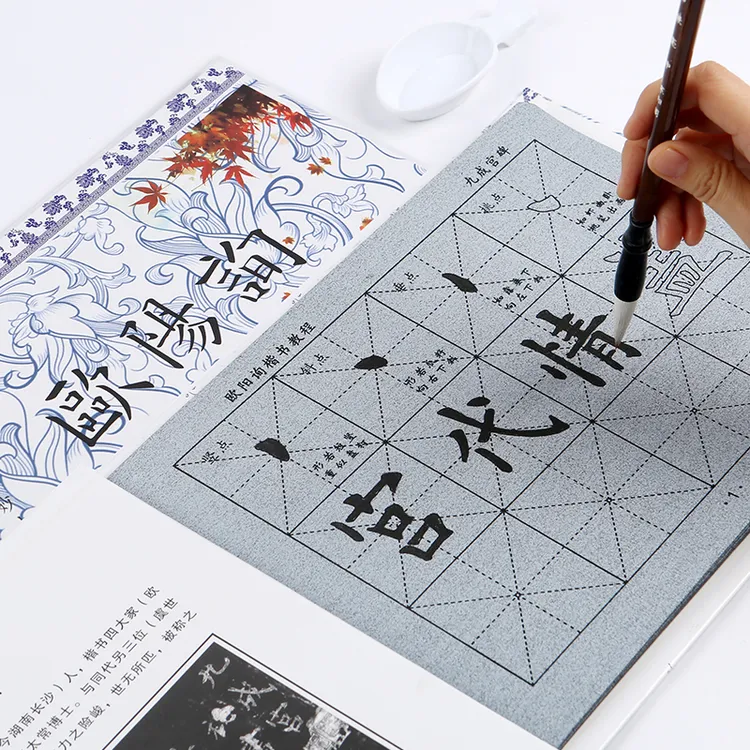 歐陽詢
妙
欧阳询楷书教程
九成宫碑
竖点
斜点
垂点
挑点
宫代情
1
今湖南长沙）人，楷书四大家（欧
太常博士。与同代另三位（虞世
力之险峻，世无所匹，被称之
九成宫